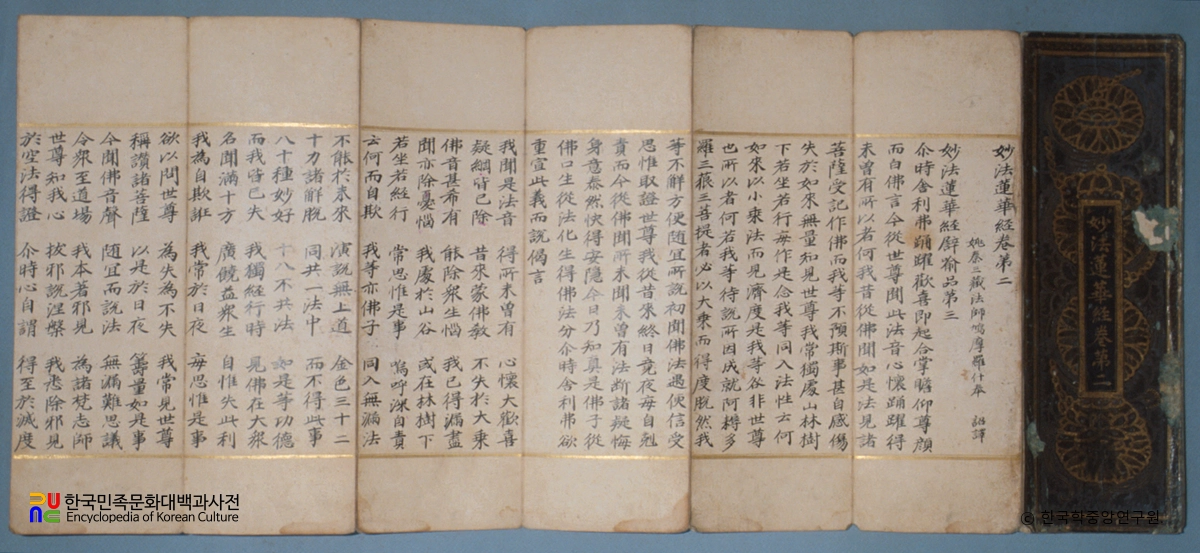 妙法蓮華經卷第二
妙法蓮華經卷第二
姚秦三藏法師鳩摩羅什奉 詔譯
妙法蓮華經譬喻品第三
尒時舍利弗踊躍歡喜即起合掌瞻仰尊顔
而白佛言今從世尊聞此法音心懷踊躍得
未曾有所以者何我昔從佛聞如是法見諸
菩薩受記作佛而我等不預斯事甚自感傷
失於如來無量知見世尊我常獨處山林樹
下若坐若行每作是念我等同入法性云何
如來以小乘法而見濟度是我等咎非世尊
也所以者何若我等待說所因成就阿耨多
羅三藐三菩提者必以大乘而得度脫然我
等不解方便隨宜所說初聞佛法遇便信受
思惟取證世尊我從昔來終日竟夜每自剋
責而今從佛聞所未聞未曾有法斷諸疑悔
身意泰然快得安隱今日乃知真是佛子從
佛口生從法化生得佛法分尒時舍利弗欲
重宣此義而說偈言
我聞是法音 得所未曾有 心懷大歡喜
疑網皆已除 昔來蒙佛教 不失於大乘
佛音甚希有 能除衆生惱 我已得漏盡
聞亦除憂惱 我處於山谷 或在林樹下
若坐若經行 常思惟是事 嗚呼深自責
云何而自欺 我等亦佛子 同入無漏法
不能於未來 演說無上道 金色三十二
十力諸解脫 同共一法中 而不得此事
八十種妙好 十八不共法 如是等功德
而我皆已失 我獨經行時 見佛在大衆
名聞滿十方 廣饒益衆生 自惟失此利
我為自欺誑 我常於日夜 每思惟是事
欲以問世尊 為失為不失 我常見世尊
稱讚諸菩薩 以是於日夜 籌量如是事
今聞佛音聲 隨宜而說法 無漏難思議
令衆至道場 我本著邪見 為諸梵志師
世尊知我心 拔邪說涅槃 我悉除邪見
於空法得證 尒時心自謂 得至於滅度
한국민족문화대백과사전
Encyclopedia of Korean Culture
© 한국학중앙연구원